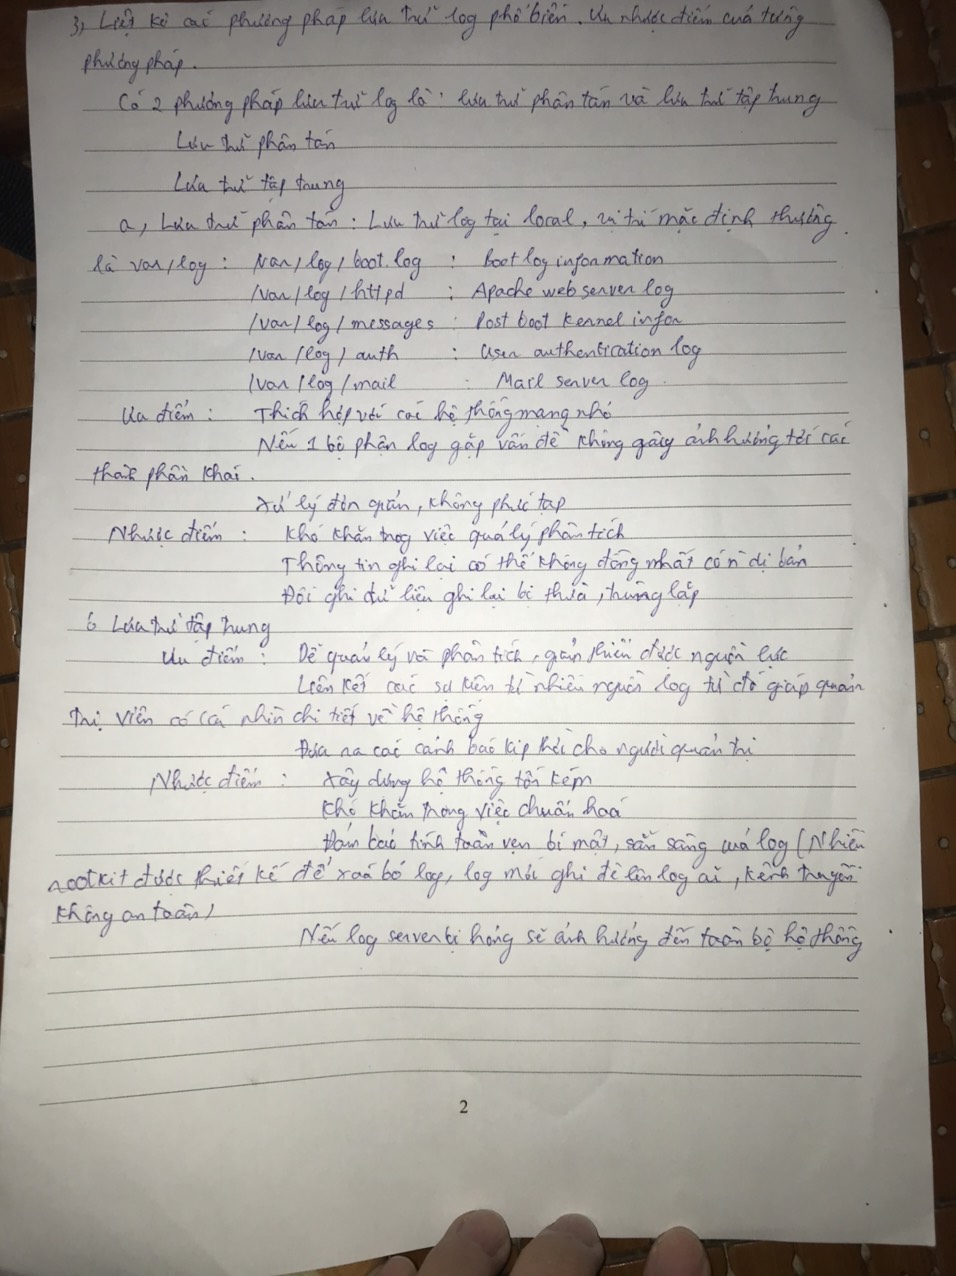 3, Liệt kê các phương pháp lưu trữ log phổ biến. Ưu nhược điểm của từng
phương pháp.
Có 2 phương pháp lưu trữ log là: lưu trữ phân tán và lưu trữ tập trung
Lưu trữ phân tán
Lưu trữ tập trung
a, Lưu trữ phân tán: Lưu trữ log tại local, vị trí mặc định thường
là var/log: /var/log/boot.log : Boot log information
/var/log/httpd : Apache web server log
/var/log/messages : Post boot kernel infor
/var/log/auth : User authentication log
/var/log/mail : Mail server log.
Ưu điểm: Thích hợp với các hệ thống mạng nhỏ
Nếu 1 bộ phận log gặp vấn đề không gây ảnh hưởng tới các
thành phần khác.
Xử lý đơn giản, không phức tạp
Nhược điểm: Khó khăn trong việc quản lý phân tích
Thông tin ghi lại có thể không đồng nhất có n dị bản
Đôi khi dữ liệu ghi lại bị thừa, trùng lặp
b Lưu trữ tập trung
Ưu điểm: Dễ quản lý và phân tích, giản thiểu được nguồn lực
Liên kết các sự kiện từ nhiều nguồn log từ đó giúp quản
trị viên có cái nhìn chi tiết về hệ thống
Đưa ra các cảnh báo kịp thời cho người quản trị
Nhược điểm: Xây dựng hệ thống tốn kém
Khó khăn trong việc chuẩn hoá
Đảm bảo tính toàn vẹn bí mật, sẵn sàng của log (Nhiều
rootkit được thiết kế để xoá bỏ log, log mới ghi đè lên log cũ, kênh truyền
không an toàn)
Nếu log server bị hỏng sẽ ảnh hưởng đến toàn bộ hệ thống
2